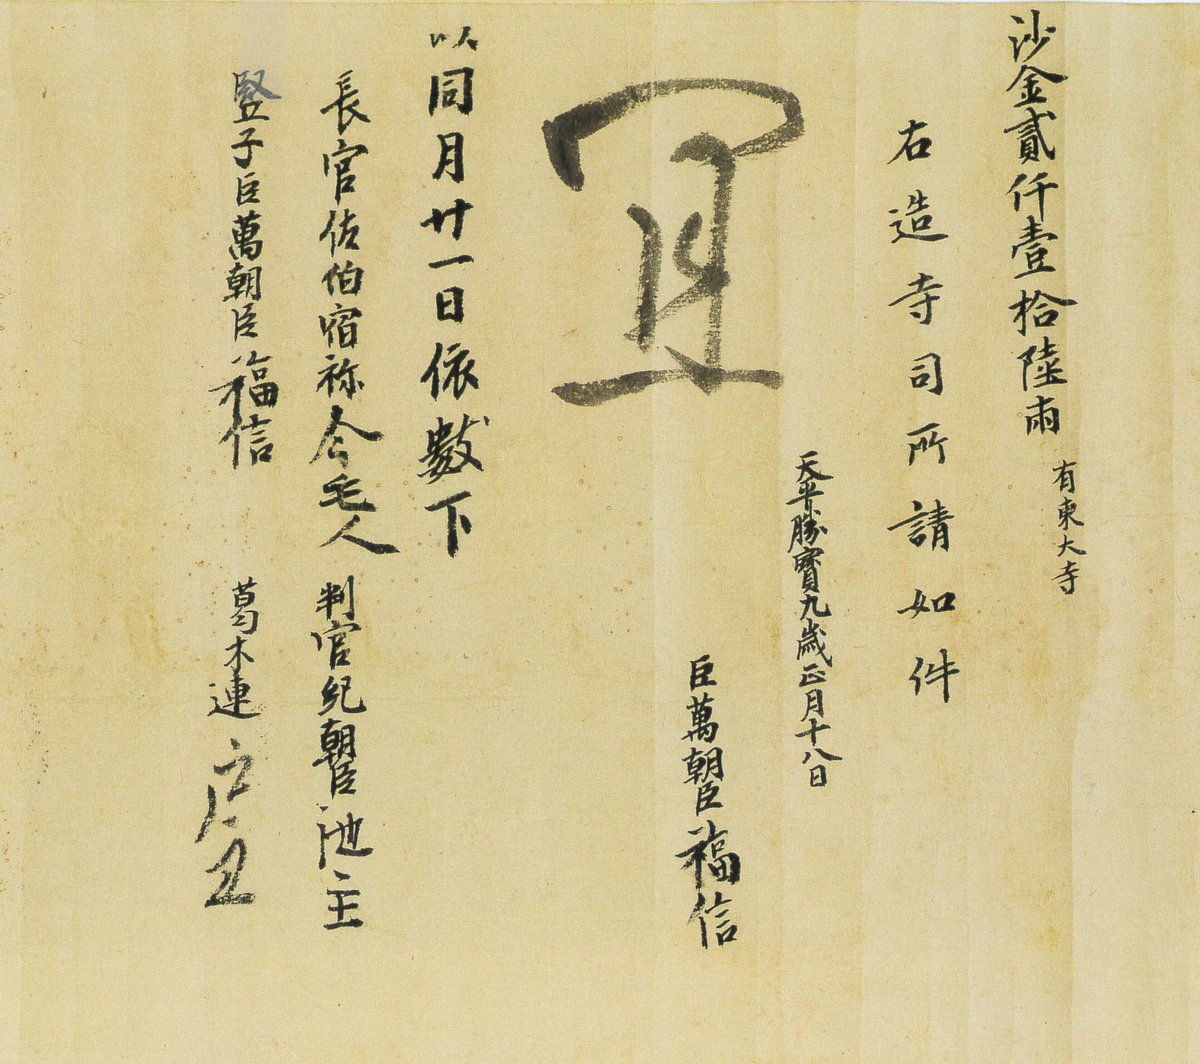 沙金貳仟壹拾陸兩 有東大寺
右造寺司所請如件
天平勝寳九歳正月十八日
臣萬朝臣福信
宜
以同月廿一日依數下
長官佐伯宿祢今毛人 判官紀朝臣池主
竪子臣萬朝臣福信 葛木連戸主